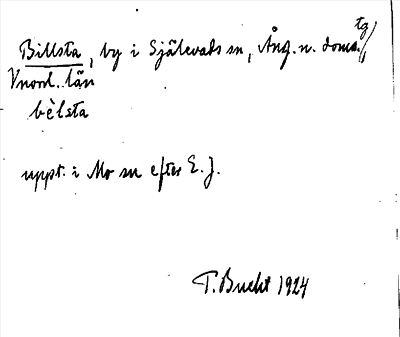 Billsta, by i Själevads sn, Ång. n. doms.
tg
Vnorrl. län
bèlsta
uppt. i Mo sn efter E. J.
T. Bucht 1924